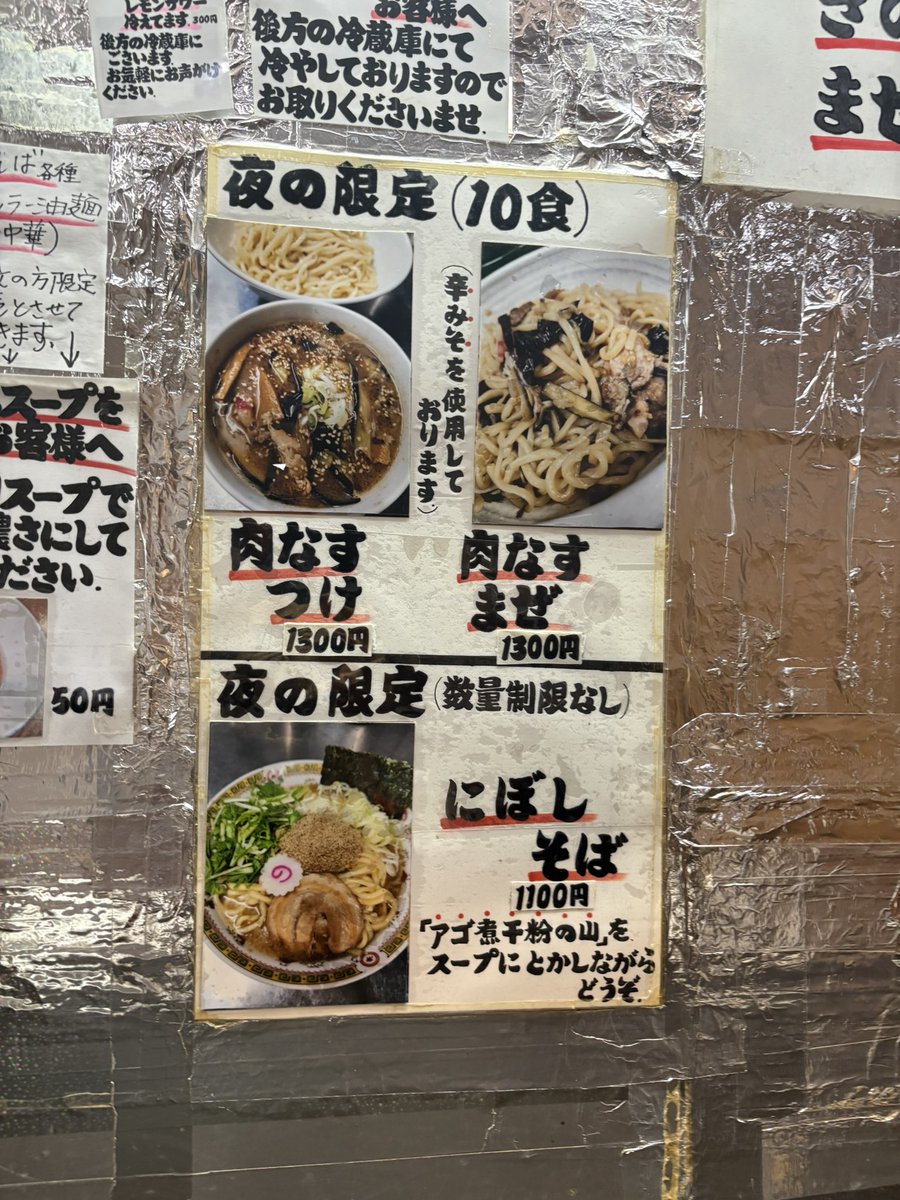 レモンサワー
冷えてます。300円
後方の冷蔵庫に
ございます。
お気軽にお声がけ
ください。
お客様へ
後方の冷蔵庫にて
冷やしておりますので
お取りくださいませ。
ませ
そば各種
ラー油麺
中華)
の方限定
とさせて
きます。
スープを
お客様へ
スープで
濃さにして
ください。
50円
夜の限定(10食)
(辛みそを使用して
おります。)
肉なす
つけ
1300円
肉なす
まぜ
1300円
夜の限定(数量制限なし)
にぼし
そば
1100円
「アゴ煮干粉の山」を
スープにとかしながら
どうぞ。